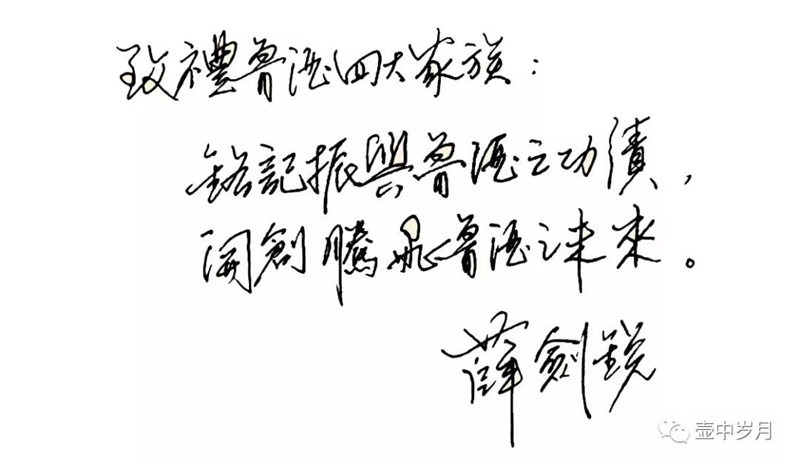 致禮魯酒四大家族：
銘記振興魯酒之功績，
開創騰飛魯酒之未來。
薛劍銳
壶中岁月